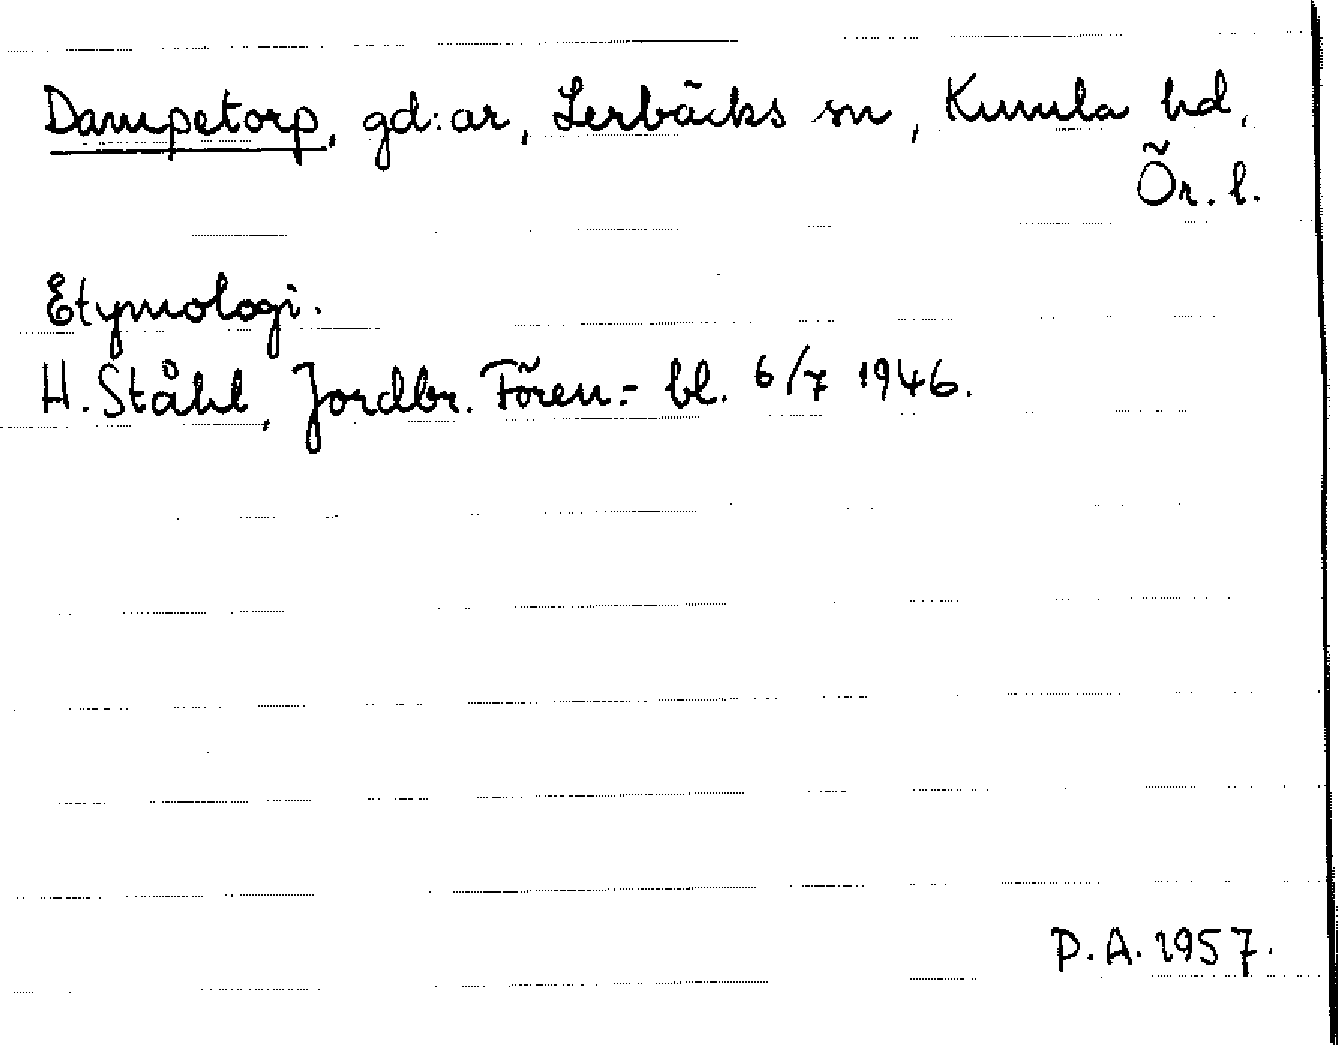 Dampetorp, gd:ar, Lerbäcks sn, Kumla hd,
Ör. l.
Etymologi.
H. Ståhl, Jordbr. Fören:- bl. 6/7 1946.
P.A. 1957.